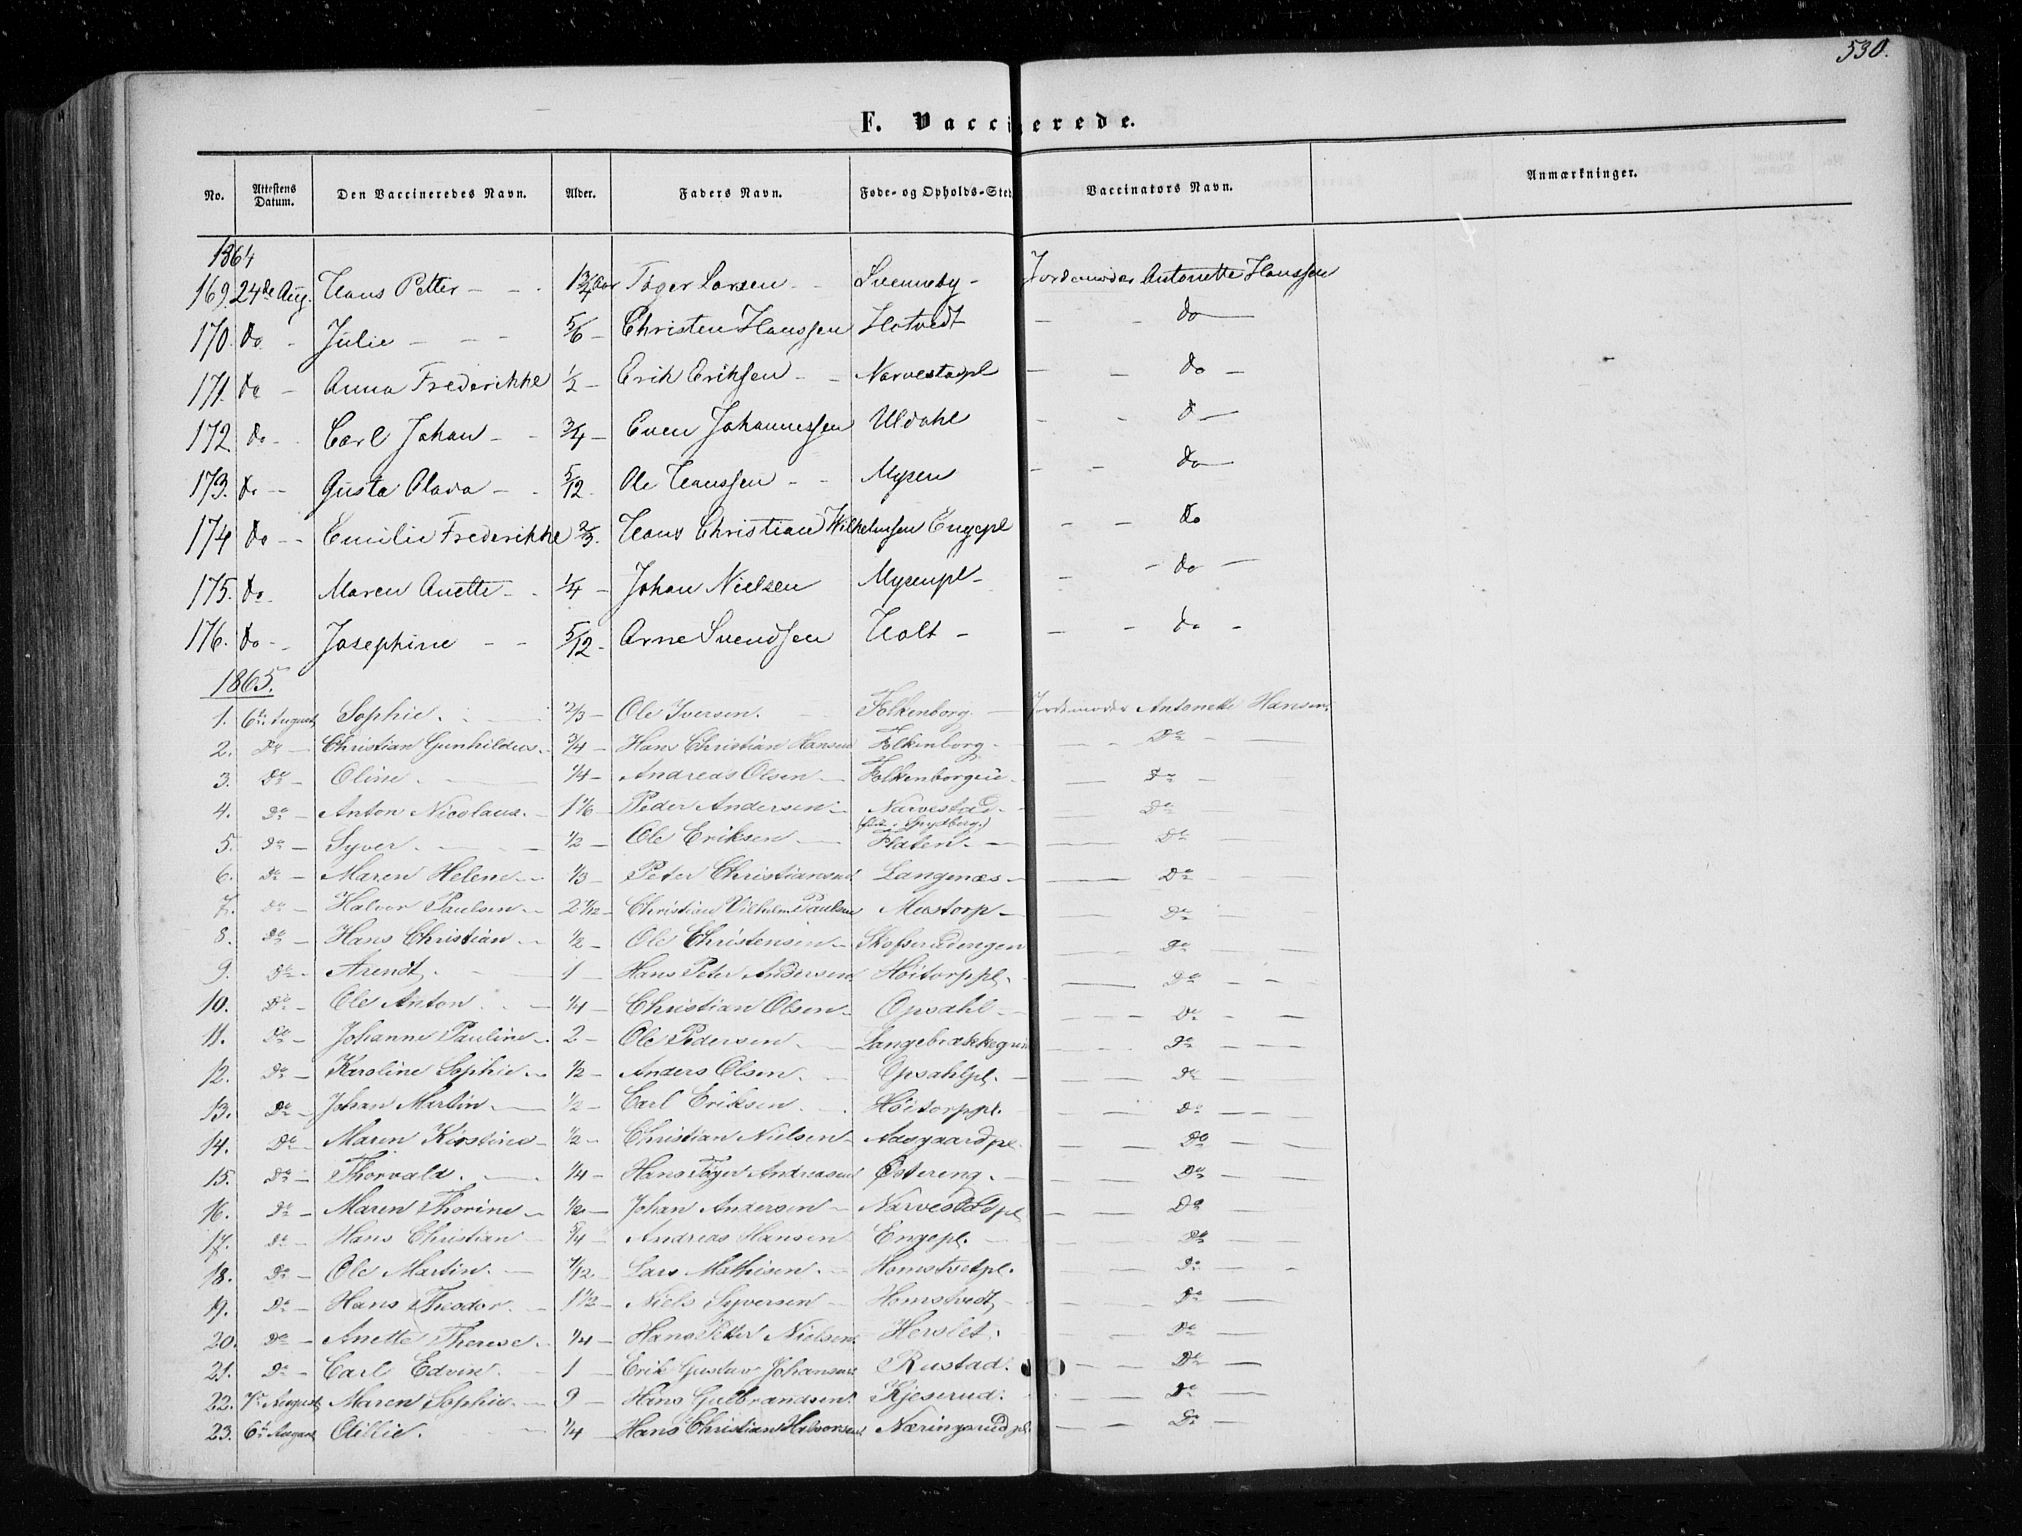 530.
F. Vaccinerede.
No. Attestens Datum. Den Vaccineredes Navn. Alder. Faders Navn. Føde- og Opholds-Sted Vaccinators Navn. Anmærkninger.
1864
169. 24de Aug. Hans Petter - - 1 3/4 Aar Tøger Larsen - - Svenneby - Jordemoder Antonette Hanssen
170. Do - Julie - - - 5/6 - Christen Hanssen Hotvedt - - do -
171. Do - Anna Frederikke 1/2 - Erik Eriksen - - Narvestadpl - - do -
172 Do - Carl Johan - - 3/4 - Even Johannessen Uldahl - - d -
173. Do - Gusta Olava - - 5/12. Ole Hanssen - - Mysen - - do -
174 Do - Emilie Frederikke 2/3. Hans Christian Wilhelmsen Engepl - - do
175. Do Maren Anette - - 1/4 - Johan Nielsen Mysenpl - - - do -
176. Do - Josephine - - 5/12 - Arne Svendsen Holt - - - do -
1865.
1. 6te August Sophie. - 2/3 - Ole Iversen. Folkenborg. - Jordemoder Antonette Hansen.
2. Do - Christian Gunhildus. - 3/4 - Hans Christian Hansen Folkenborg - - - Do - -
3. Do - Oline. - 1/4 - Andreas Olsen - Folkenborgeie - - Do -
4. Do - Anton Nicolaus. - 1 1/6 - Peder Andersen - Narvestad. - - Do -
(fød i Spydberg.)
5. Do - Syver. - - 1/2 - Ole Eriksen - Flaten. - - - Do -
6. Do - Maren Helene - 1/3 - Peter Christiansen Langenæs - - - Do - -
7. Do - Halvor Paulsen - 2 1/12 - Christian Vilhelm Paulsen Mustorp - - - Do - -
8. Do - Hans Christian - 1/2 - Ole Christensen - Skofserudengen - - Do - -
9. Do - Arendt. - 1 - Hans Peter Andersen Høitorppl. - - Do - - -
10. Do - Ole Anton. - 1/4 - Christian Olsen - Opsahl - - - - Do - -
11. Do - Johanne Pauline - 2 - Ole Pedersen - Langebrækkegrin - - Do - -
12. Do - Karoline Sophie - 1/2 - Anders Olsen. - Opsahlpl. - - - Do - -
13. Do - Johan Martin. - 1/2 - Carl Eriksen. - Høitorppl. - - Do - -
14. Do - Maren Kirstine - 1/2 - Christian Nielsen - Aasgaardpl. - - Do - -
15. Do - Thorvald. - 1/4 - Hans Tøger Andreasen Østereng. - - - Do - -
16. Do - Maren Thorine - 1/2 - Johan Andersen - Narvestadpl - - Do -
17. Do - Hans Christian - 5/4 - Andreas Hansen Engepl. - - - Do -
18. Do - Ole Martin. - 7/12 - Lars Mathisen. - Homstvetpl. - - Do - -
19. Do - Hans Theodor. - 1 1/2 - Niels Syversen - Homstvedt, - - Do -
20. Do - Anette Therese. - 1/4 - Hans Peter Nielsen. Herslet. - - Do -
21. Do - Carl Edvin. - 1 - Erik Gustav Johansen Rustad. - - Do -
22. 7de August Maren Sophie. - 9 - Hans Gulbrandsen. Kjeserud. - - Do -
23. 6te August - 1/4 - Hans Christian Halvorsen Næringsrudpl. - - Do -